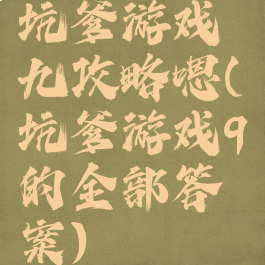 坑爹游戏
九攻略嗯(
坑爹游戏9
的全部答
案)